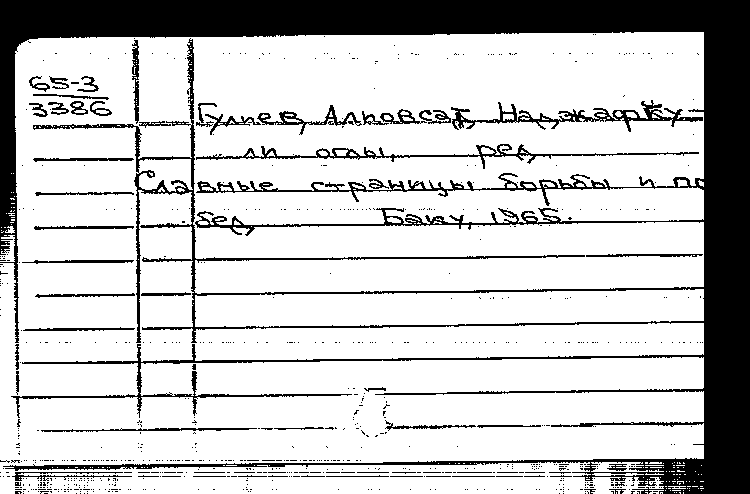 65-3
3386
Гулиев, Алиовсат Наджафку-
ли оглы, ред.
Славные страницы борьбы и по
бед. Баку, 1965.